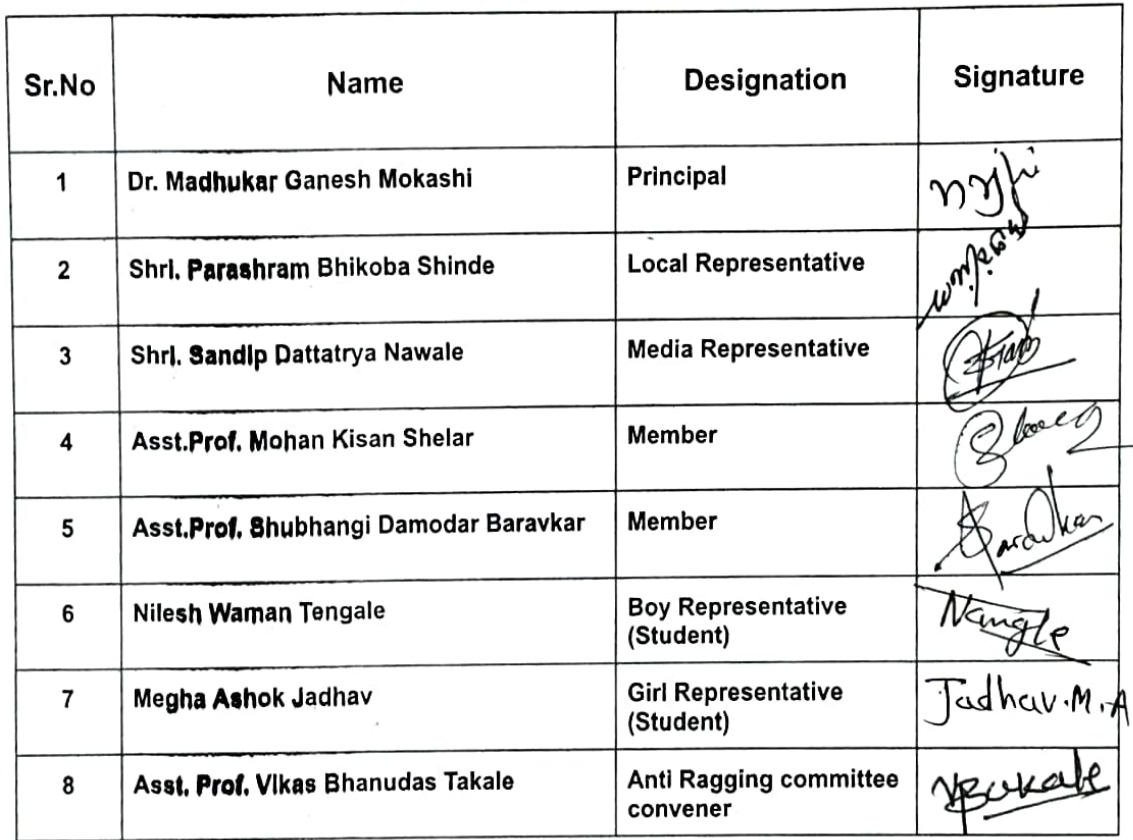 Sr.No Name Designation Signature
1 Dr. Madhukar Ganesh Mokashi Principal
2 Shri. Parashram Bhikoba Shinde Local Representative
3 Shri. Sandip Dattatrya Nawale Media Representative
4 Asst.Prof. Mohan Kisan Shelar Member
5 Asst.Prof. Shubhangi Damodar Baravkar Member
6 Nilesh Waman Tengale Boy Representative
(Student)
7 Megha Ashok Jadhav Girl Representative Jadhav.M.A
(Student)
8 Asst. Prof. Vikas Bhanudas Takale Anti Ragging committee
convener